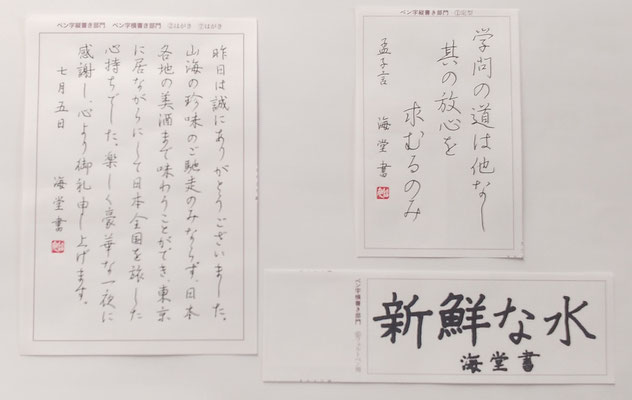 ペン字縦書き部門　ペン字横書き部門　②はがき　⑦はがき
昨日は誠にありがとうございました。
山海の珍味のご馳走のみならず、日本
各地の美酒まで味わうことができ、東京
に居ながらにして日本全国を旅した
心持ちでした。楽しく豪華な一夜に
感謝し、心より御礼申し上げます。
七月五日　海堂書
ペン字縦書き部門
学問の道は他なし
其の放心を
求むるのみ
孟子言　海堂書
ペン字横書き部門
新鮮な水
海堂書